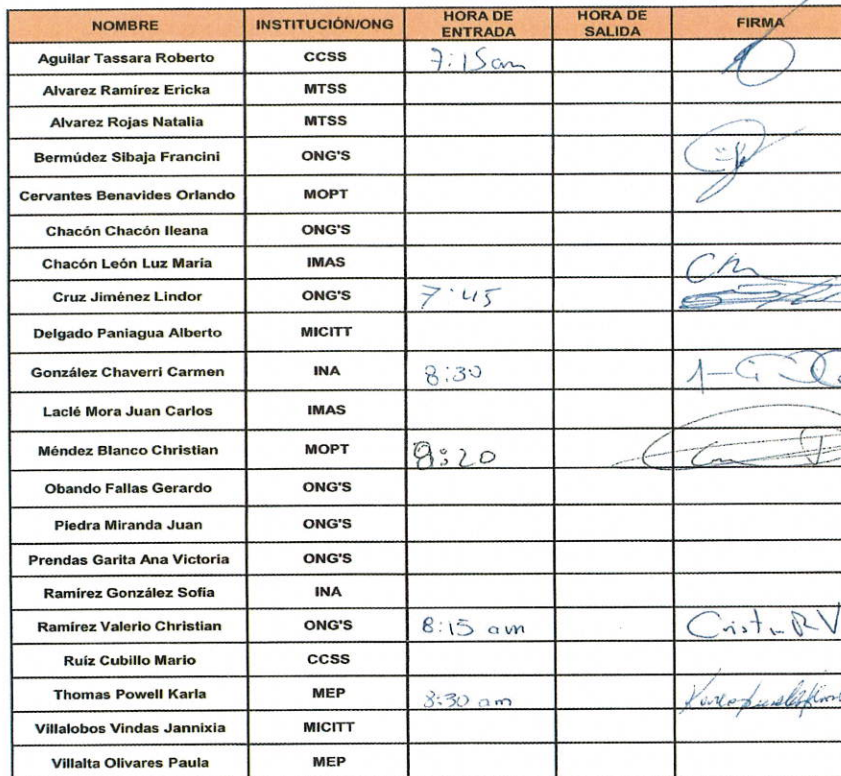 NOMBRE INSTITUCIÓN/ONG HORA DE ENTRADA HORA DE SALIDA FIRMA
Aguilar Tassara Roberto CCSS 7:15am
Alvarez Ramírez Ericka MTSS
Alvarez Rojas Natalia MTSS
Bermúdez Sibaja Francini ONG'S
Cervantes Benavides Orlando MOPT
Chacón Chacón Ileana ONG'S
Chacón León Luz María IMAS
Cruz Jiménez Lindor ONG'S 7:45
Delgado Paniagua Alberto MICITT
González Chaverri Carmen INA 8:30
Laclé Mora Juan Carlos IMAS
Méndez Blanco Christian MOPT :20
Obando Fallas Gerardo ONG'S
Piedra Miranda Juan ONG'S
Prendas Garita Ana Victoria ONG'S
Ramírez González Sofía INA
Ramírez Valerio Christian ONG'S 8:15 am
Ruíz Cubillo Mario CCSS
Thomas Powell Karla MEP 8:30 am
Villalobos Vindas Jannixia MICITT
Villalta Olivares Paula MEP